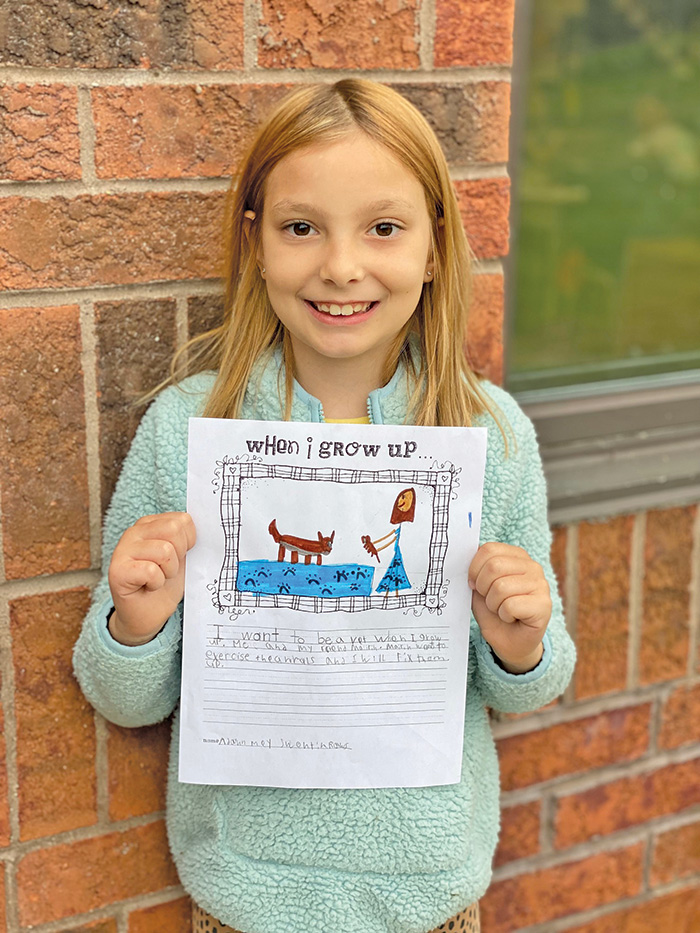 WHEN I GROW UP...
I want to be a vet when I grow
up. Me and my friend March. March want to
exercise the anmals and I will fix them
up.
name